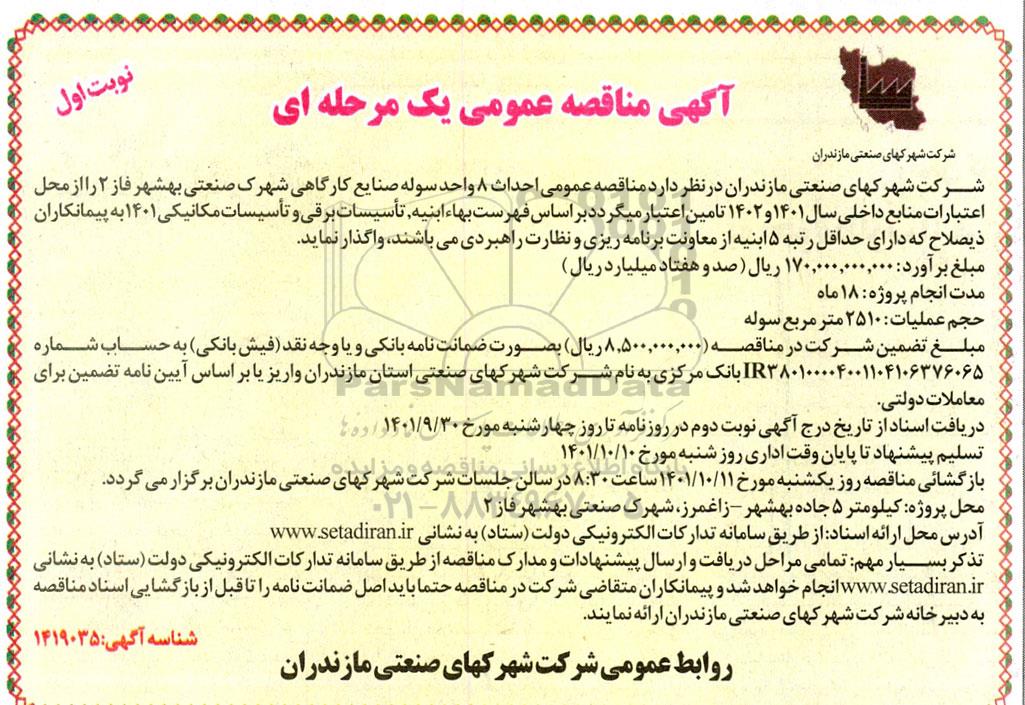 نوبت اول
آگهی مناقصه عمومی یک مرحله ای
شرکت شهرکهای صنعتی مازندران
شرکت شهرکهای صنعتی مازندران در نظر دارد مناقصه عمومی احداث ۸ واحد سوله صنایع کارگاهی شهرک صنعتی بهشهر فاز ۲ را از محل
اعتبارات منابع داخلی سال ۱۴۰۱ و ۱۴۰۲ تامین اعتبار میگردد بر اساس فهرست بهاء ابنیه، تأسیسات برقی و تأسیسات مکانیکی ۱۴۰۱ به پیمانکاران
ذیصلاح که دارای حداقل رتبه ۵ ابنیه از معاونت برنامه ریزی و نظارت راهبردی می باشند، واگذار نماید.
مبلغ برآورد: ۱۷۰,۰۰۰,۰۰۰,۰۰۰ ریال (صد و هفتاد میلیارد ریال)
مدت انجام پروژه: ۱۸ ماه
حجم عملیات: ۲۵۱۰ متر مربع سوله
مبلغ تضمین شرکت در مناقصه (۸,۵۰۰,۰۰۰,۰۰۰ ریال) بصورت ضمانت نامه بانکی و یا وجه نقد (فیش بانکی) به حساب شماره
IR۳۸۰۱۰۰۰۰۴۰۰۱۱۰۴۱۰۶۳۷۶۰۶۵ بانک مرکزی به نام شرکت شهرکهای صنعتی استان مازندران واریز یا بر اساس آیین نامه تضمین برای
معاملات دولتی.
دریافت اسناد از تاریخ درج آگهی نوبت دوم در روزنامه تا روز چهارشنبه مورخ ۱۴۰۱/۹/۳۰
تسلیم پیشنهاد تا پایان وقت اداری روز شنبه مورخ ۱۴۰۱/۱۰/۱۰
بازگشائی مناقصه روز یکشنبه مورخ ۱۴۰۱/۱۰/۱۱ ساعت ۸:۳۰ در سالن جلسات شرکت شهرکهای صنعتی مازندران برگزار می گردد.
محل پروژه: کیلومتر ۵ جاده بهشهر – زاغمرز، شهرک صنعتی بهشهر فاز ۲
آدرس محل ارائه اسناد: از طریق سامانه تدارکات الکترونیکی دولت (ستاد) به نشانی www.setadiran.ir
تذکر بسیار مهم: تمامی مراحل دریافت و ارسال پیشنهادات و مدارک مناقصه از طریق سامانه تدارکات الکترونیکی دولت (ستاد) به نشانی
www.setadiran.ir انجام خواهد شد و پیمانکاران متقاضی شرکت در مناقصه حتما باید اصل ضمانت نامه را تا قبل از بازگشایی اسناد مناقصه
به دبیرخانه شرکت شهرکهای صنعتی مازندران ارائه نمایند.
شناسه آگهی: ۱۴۱۹۰۳۵
روابط عمومی شرکت شهرکهای صنعتی مازندران
ParsNamadData
پایگاه اطلاع رسانی مناقصه و مزایده
۰۲۱-۸۸۳۴۹۶۷۰-۵